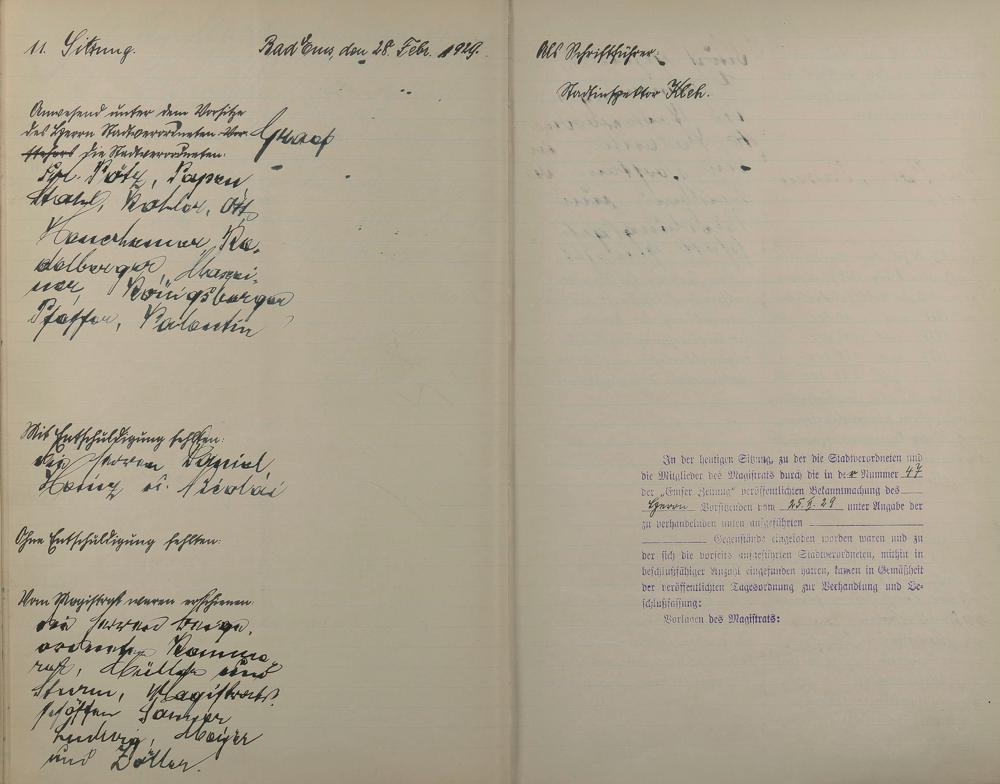 11. Sitzung.
Bad Ems, den 28. Febr. 1929.
Anwesend unter dem Vorsitze
des Herrn Stadtverordneten Vor-
stehers die Stadtverordneten:
Frl. Rötz, Papen,
Stahl, Kohler, Ott,
Königsberger
Pfeffer, Valentin
Mit Entschuldigung fehlten:
die Herren Daniel,
Heinz u. Nicolai
Ohne Entschuldigung fehlten:
Vom Magistrat waren erschienen:
die Herren Beige-
ordneter
Müller und
Sturm, Magistrats-
schöffen
Ludwig, Meyer
und Zöller.
Als Schriftführer:
Stadtinspektor
In der heutigen Sitzung, zu der die Stadtverordneten und
die Mitglieder des Magistrats durch die in der Nummer 47
der „Emser Zeitung" veröffentlichten Bekanntmachung des
Herrn Vorsitzenden vom 25.2.29 unter Angabe der
zu verhandelnden unten aufgeführten
Gegenstände eingeladen worden waren und zu
der sich die vorseits aufgeführten Stadtverordneten, mithin in
beschlußfähiger Anzahl eingefunden hatten, kamen in Gemäßheit
der veröffentlichten Tagesordnung zur Verhandlung und Be-
schlußfassung:
Vorlagen des Magistrats: